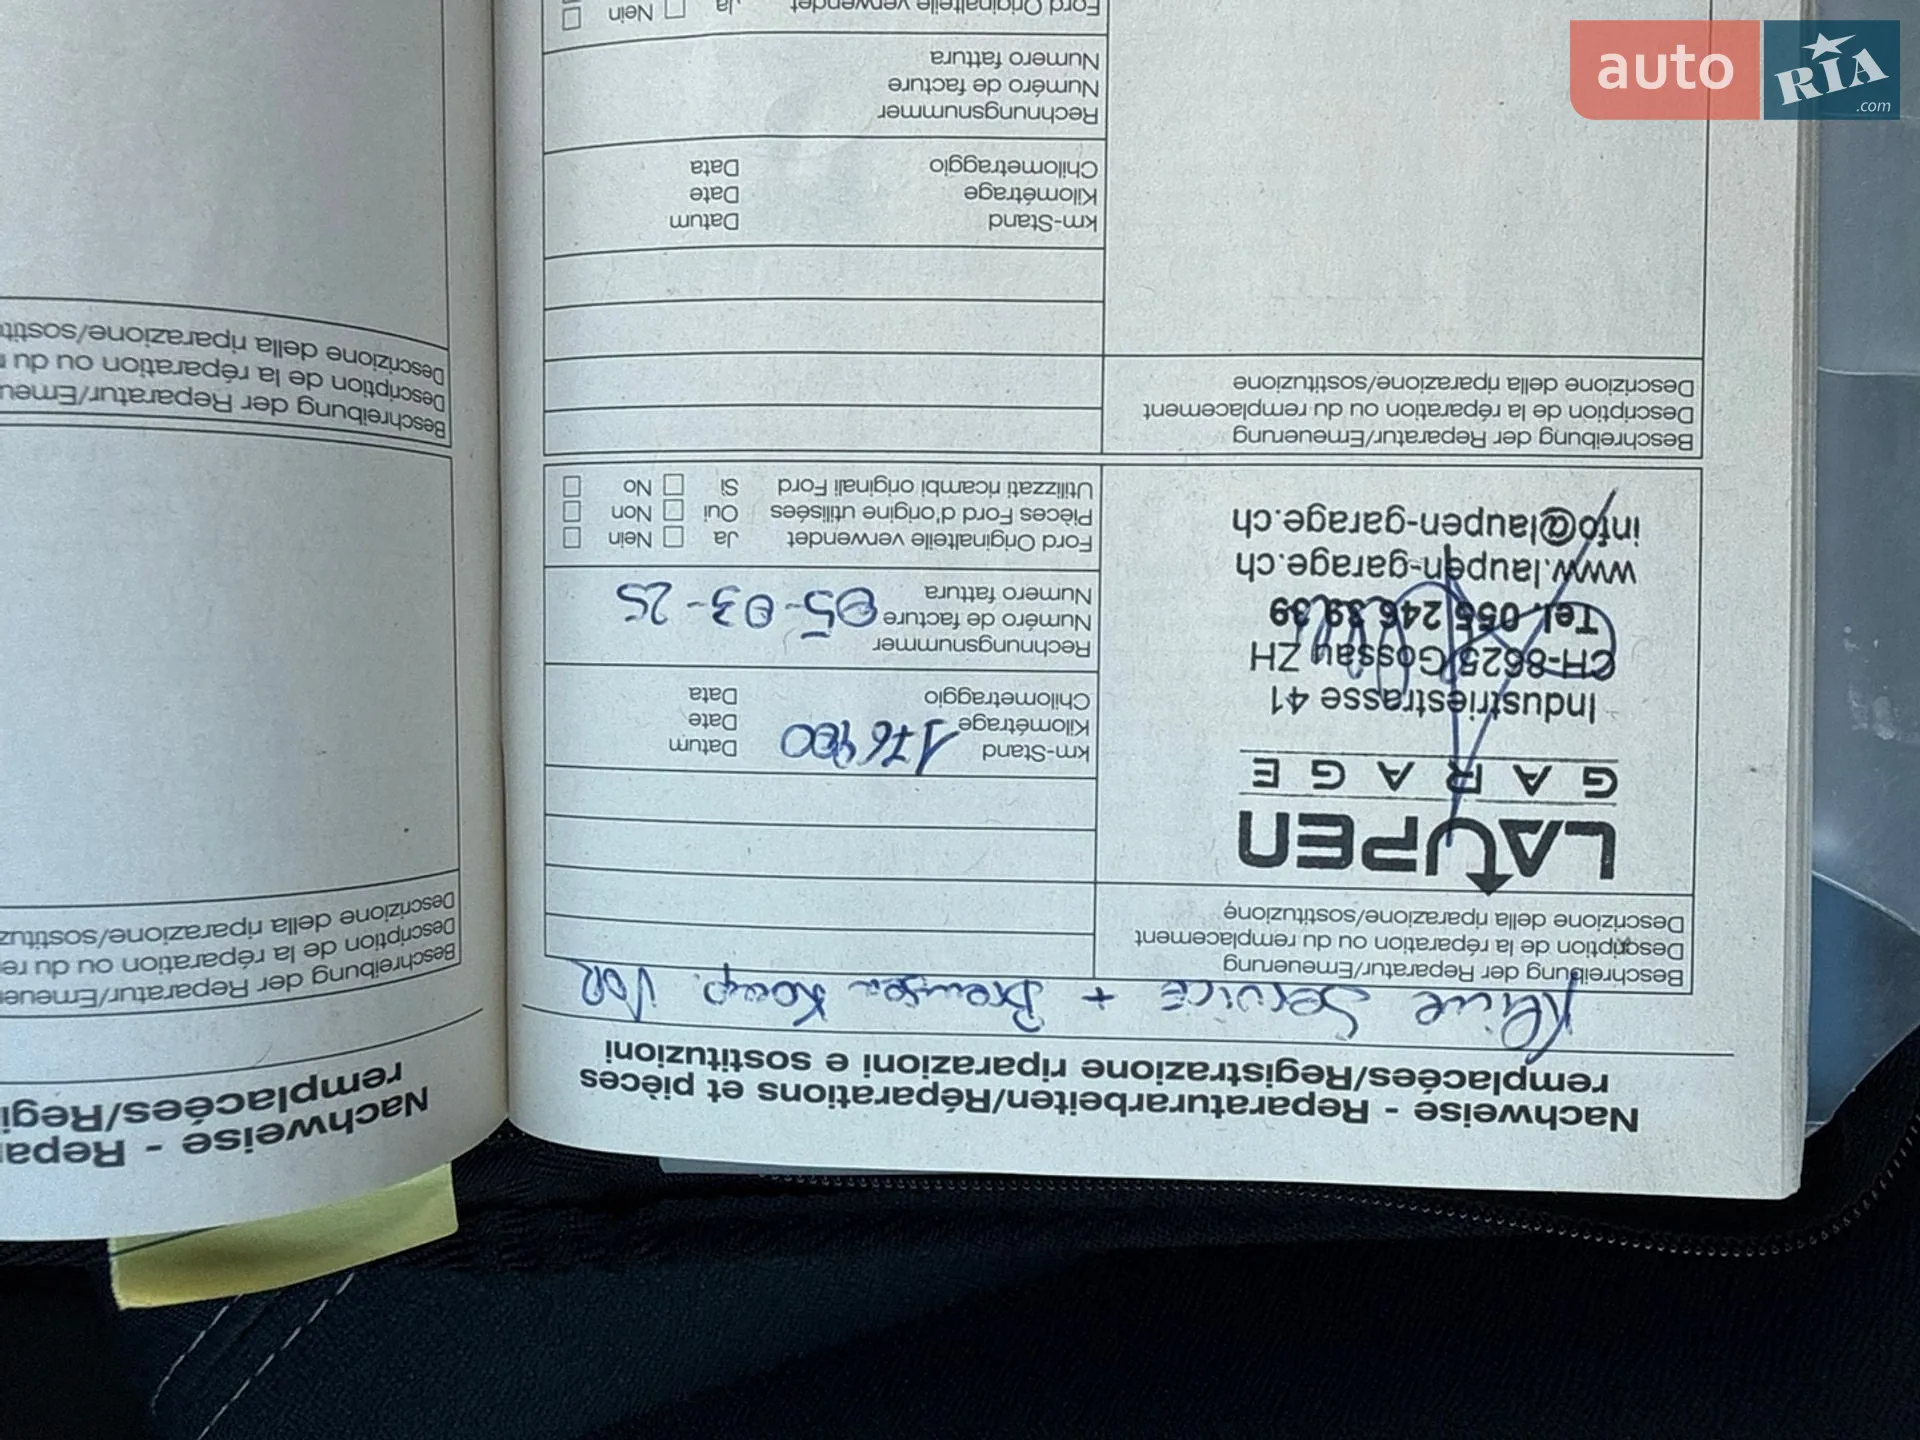 auto RIA.com
Nachweise - Reparaturarbeiten/Réparations et pièces
remplacées/Registrazione riparazioni e sostituzioni
Kleine Service + Bremsen Komp. VOR
Beschreibung der Reparatur/Erneuerung
Description de la réparation ou du remplacement
Descrizione della riparazione/sostituzione
LAUPEN
GARAGE
Industriestrasse 41
CH-8625 Gossau ZH
Tel. 055 246 39 39
www.laupen-garage.ch
info@laupen-garage.ch
km-Stand Datum
Kilométrage Date
Chilometraggio Data
176400
Rechnungsnummer
Numéro de facture
Numero fattura
05-03-25
Ford Originalteile verwendet Ja Nein
Pièces Ford d'origine utilisées Oui Non
Utilizzati ricambi originali Ford Sì No
Beschreibung der Reparatur/Erneuerung
Description de la réparation ou du remplacement
Descrizione della riparazione/sostituzione
km-Stand Datum
Kilométrage Date
Chilometraggio Data
Rechnungsnummer
Numéro de facture
Numero fattura
Ford Originalteile verwendet Ja Nein
Nachweise - Repa
remplacées/Regi
Beschreibung der Reparatur/Erneue
Description de la réparation ou du re
Descrizione della riparazione/sostituz
Beschreibung der Reparatur/Erneu
Description de la réparation ou du
Descrizione della riparazione/sostit